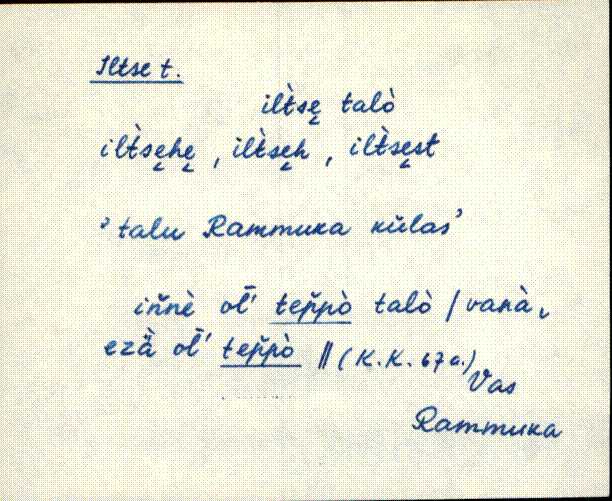 Iltse t.
ilt̀sę talò
ilt̀sęhę, ilt̀sęh, ilt̀sęst
'talu Rammuka külas'
iňnè oľ' tep̌pò talò / vanà,
ezä̀ oľ' tep̌pò || (K.K. 67 a.)
Vas
Rammuka